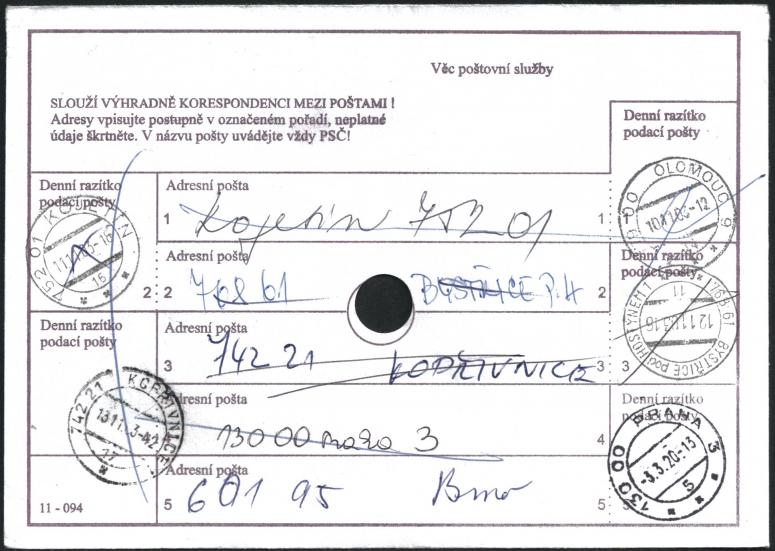 Věc poštovní služby
SLOUŽÍ VÝHRADNĚ KORESPONDENCI MEZI POŠTAMI !
Adresy vpisujte postupně v označeném pořadí, neplatné
údaje škrtněte. V názvu pošty uvádějte vždy PSČ!
Denní razítko
podací pošty
OLOMOUC 9
Denní razítko
podací pošty
752 01 KOJETÍN
15
Adresní pošta
1 Kojetín 752 01 1
Adresní pošta
2 2 768 61 BYSTŘICE P.H 2
Denní razítko
podací pošty
768 61 BYSTŘICE pod HOSTÝNEM 1
11
Denní razítko
podací pošty
742 21 KOPŘIVNICE
17
Adresní pošta
3 742 21 KOPŘIVNICE 3 3
Adresní pošta
4 13000 Praha 3 4
Denní razítko
podací pošty
130 00 PRAHA 3
-3.3.20-13
5
Adresní pošta
5 601 95 Brno 5 5
11 - 094